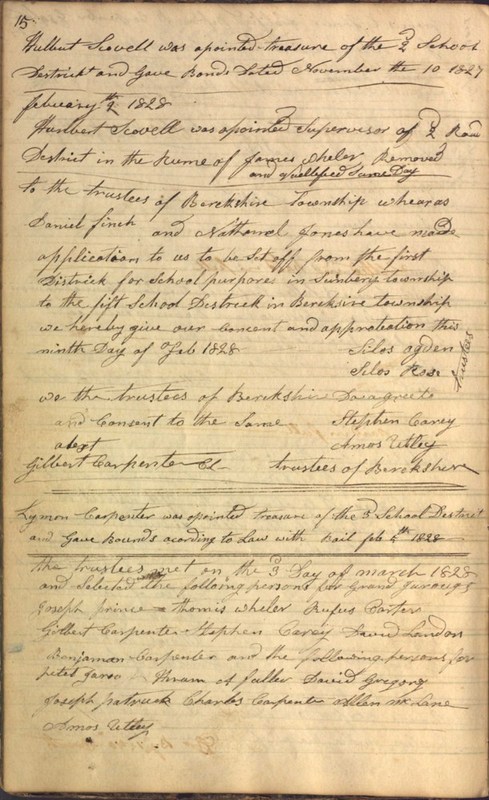 15
Hulbut Scovell was apointed treasure of the 2 School
Destrickt and Gave Bonds Dated November the 10 1827
febuary th 2 1828
Hurlbert Scovell was apointed Supervisor of 2 Road
District in the Rume of James Wheler Removed
and Quallified Same Day
to the trustees of Berckshire Township whearas
Daniel finch and Nathanel Jones have made
application to us to be Set off from the first
District for School purpores in Sunbery township
to the fift School Destreeck in Berckshire township
we hereby give our Concent and approbation this
ninth Day of Feb 1828 Silos ogden
Silos Rose trustees
we the trustees of Berckshire Do agree to
and Consent to the Same Stephen Carey
atest Amos Utley
Gilbert Carpenter Cl trustees of Berckshire
Lymon Carpenter was apointed treasure of the 3 School District
and Gave Bounds acording to Law with Bail feb 5th 1828
the trustees met on the 3 Day of march 1828
and Selected the following persons for Grand Juroug
Joseph prince thomis wheler Rufus Carter
Gilbert Carpenter Stephen Carey David Landon
Benjaman Carpenter and the following persons for
petet Juroo Hiram of fuller David Gregory
Joseph patrick Charles Carpenter Allen McLane
Amos Utley